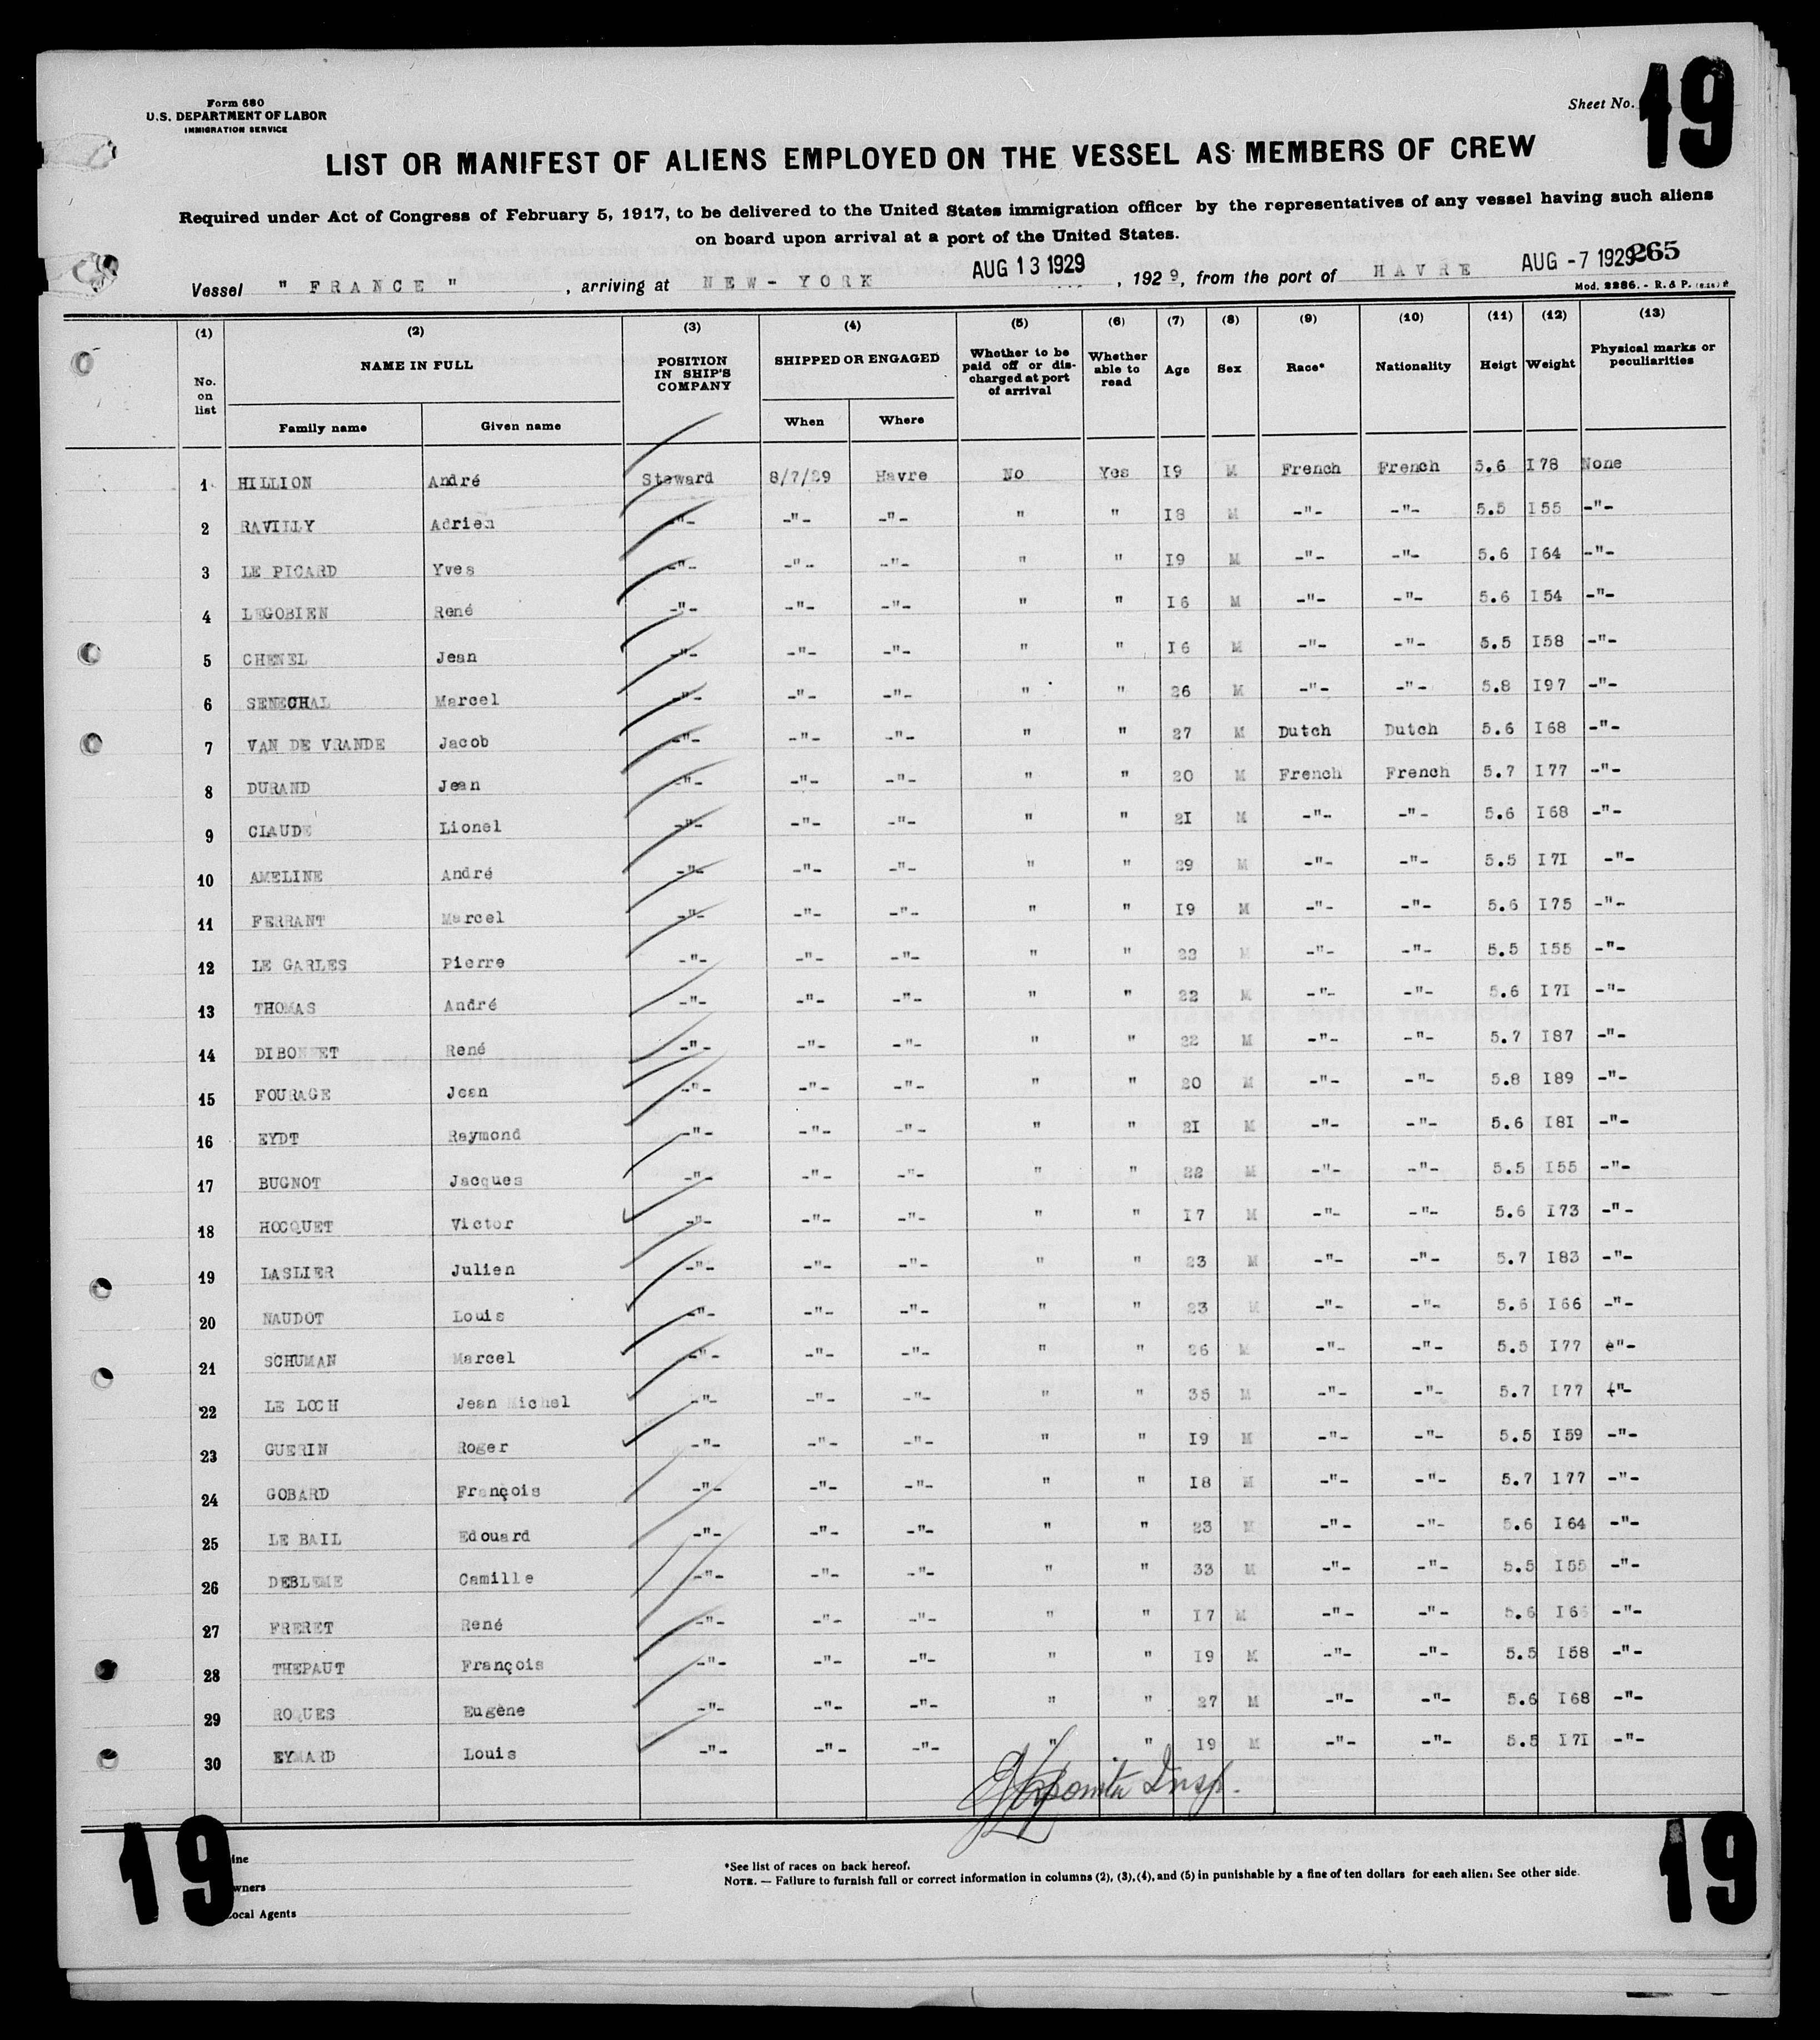 Form 680
U.S. DEPARTMENT OF LABOR
IMMIGRATION SERVICE
Sheet No. 19
LIST OR MANIFEST OF ALIENS EMPLOYED ON THE VESSEL AS MEMBERS OF CREW
Required under Act of Congress of February 5, 1917, to be delivered to the United States immigration officer by the representatives of any vessel having such aliens
on board upon arrival at a port of the United States.
Vessel " FRANCE " , arriving at NEW-YORK AUG 13 1929 , 1929, from the port of HAVRE AUG -7 1929 265
Mod. 2286. - R. & P.
(1) (2) (3) (4) (5) (6) (7) (8) (9) (10) (11) (12) (13)
No. on list NAME IN FULL POSITION IN SHIP'S COMPANY SHIPPED OR ENGAGED Whether to be paid off or discharged at port of arrival Whether able to read Age Sex Race* Nationality Heigt Weight Physical marks or peculiarities
Family name Given name When Where
1 HILLION André Steward 8/7/29 Havre No Yes I9 M French French 5.6 I78 None
2 RAVILLY Adrien -"- -"- -"- " " I8 M -"- -"- 5.5 I55 -"-
3 LE PICARD Yves -"- -"- -"- " " I9 M -"- -"- 5.6 I64 -"-
4 LEGOBIEN René -"- -"- -"- " " I6 M -"- -"- 5.6 I54 -"-
5 CHENEL Jean -"- -"- -"- " " I6 M -"- -"- 5.5 I58 -"-
6 SENECHAL Marcel -"- -"- -"- " " 26 M -"- -"- 5.8 I97 -"-
7 VAN DE VRANDE Jacob -"- -"- -"- " " 27 M Dutch Dutch 5.6 I68 -"-
8 DURAND Jean -"- -"- -"- " " 20 M French French 5.7 I77 -"-
9 CLAUDE Lionel -"- -"- -"- " " 2I M -"- -"- 5.6 I68 -"-
10 AMELINE André -"- -"- -"- " " 29 M -"- -"- 5.5 I7I -"-
11 FERRANT Marcel -"- -"- -"- " " I9 M -"- -"- 5.6 I75 -"-
12 LE GARLES Pierre -"- -"- -"- " " 22 M -"- -"- 5.5 I55 -"-
13 THOMAS André -"- -"- -"- " " 22 M -"- -"- 5.6 I7I -"-
14 DIBONNET René -"- -"- -"- " " 22 M -"- -"- 5.7 I87 -"-
15 FOURAGE Jean -"- -"- -"- " " 20 M -"- -"- 5.8 I89 -"-
16 EYDT Raymond -"- -"- -"- " " 2I M -"- -"- 5.6 I8I -"-
17 BUGNOT Jacques -"- -"- -"- " " 22 M -"- -"- 5.5 I55 -"-
18 HOCQUET Victor -"- -"- -"- " " I7 M -"- -"- 5.6 I73 -"-
19 LASLIER Julien -"- -"- -"- " " 23 M -"- -"- 5.7 I83 -"-
20 NAUDOT Louis -"- -"- -"- " " 23 M -"- -"- 5.6 I66 -"-
21 SCHUMAN Marcel -"- -"- -"- " " 26 M -"- -"- 5.5 I77 -"-
22 LE LOCH Jean Michel -"- -"- -"- " " 35 M -"- -"- 5.7 I77 -"-
23 GUERIN Roger -"- -"- -"- " " I9 M -"- -"- 5.5 I59 -"-
24 GOBARD François -"- -"- -"- " " I8 M -"- -"- 5.7 I77 -"-
25 LE BAIL Edouard -"- -"- -"- " " 23 M -"- -"- 5.6 I64 -"-
26 DEBLEME Camille -"- -"- -"- " " 33 M -"- -"- 5.5 I55 -"-
27 FRERET René -"- -"- -"- " " I7 M -"- -"- 5.6 -"-
28 THEPAUT François -"- -"- -"- " " I9 M -"- -"- 5.5 I58 -"-
29 ROQUES Eugène -"- -"- -"- " " 27 M -"- -"- 5.6 I68 -"-
30 EYMARD Louis -"- -"- -"- " " I9 M -"- -"- 5.5 I7I -"-
Insp.
19 19
*See list of races on back hereof.
NOTE. — Failure to furnish full or correct information in columns (2), (3), (4), and (5) in punishable by a fine of ten dollars for each alien. See other side.
Local Agents